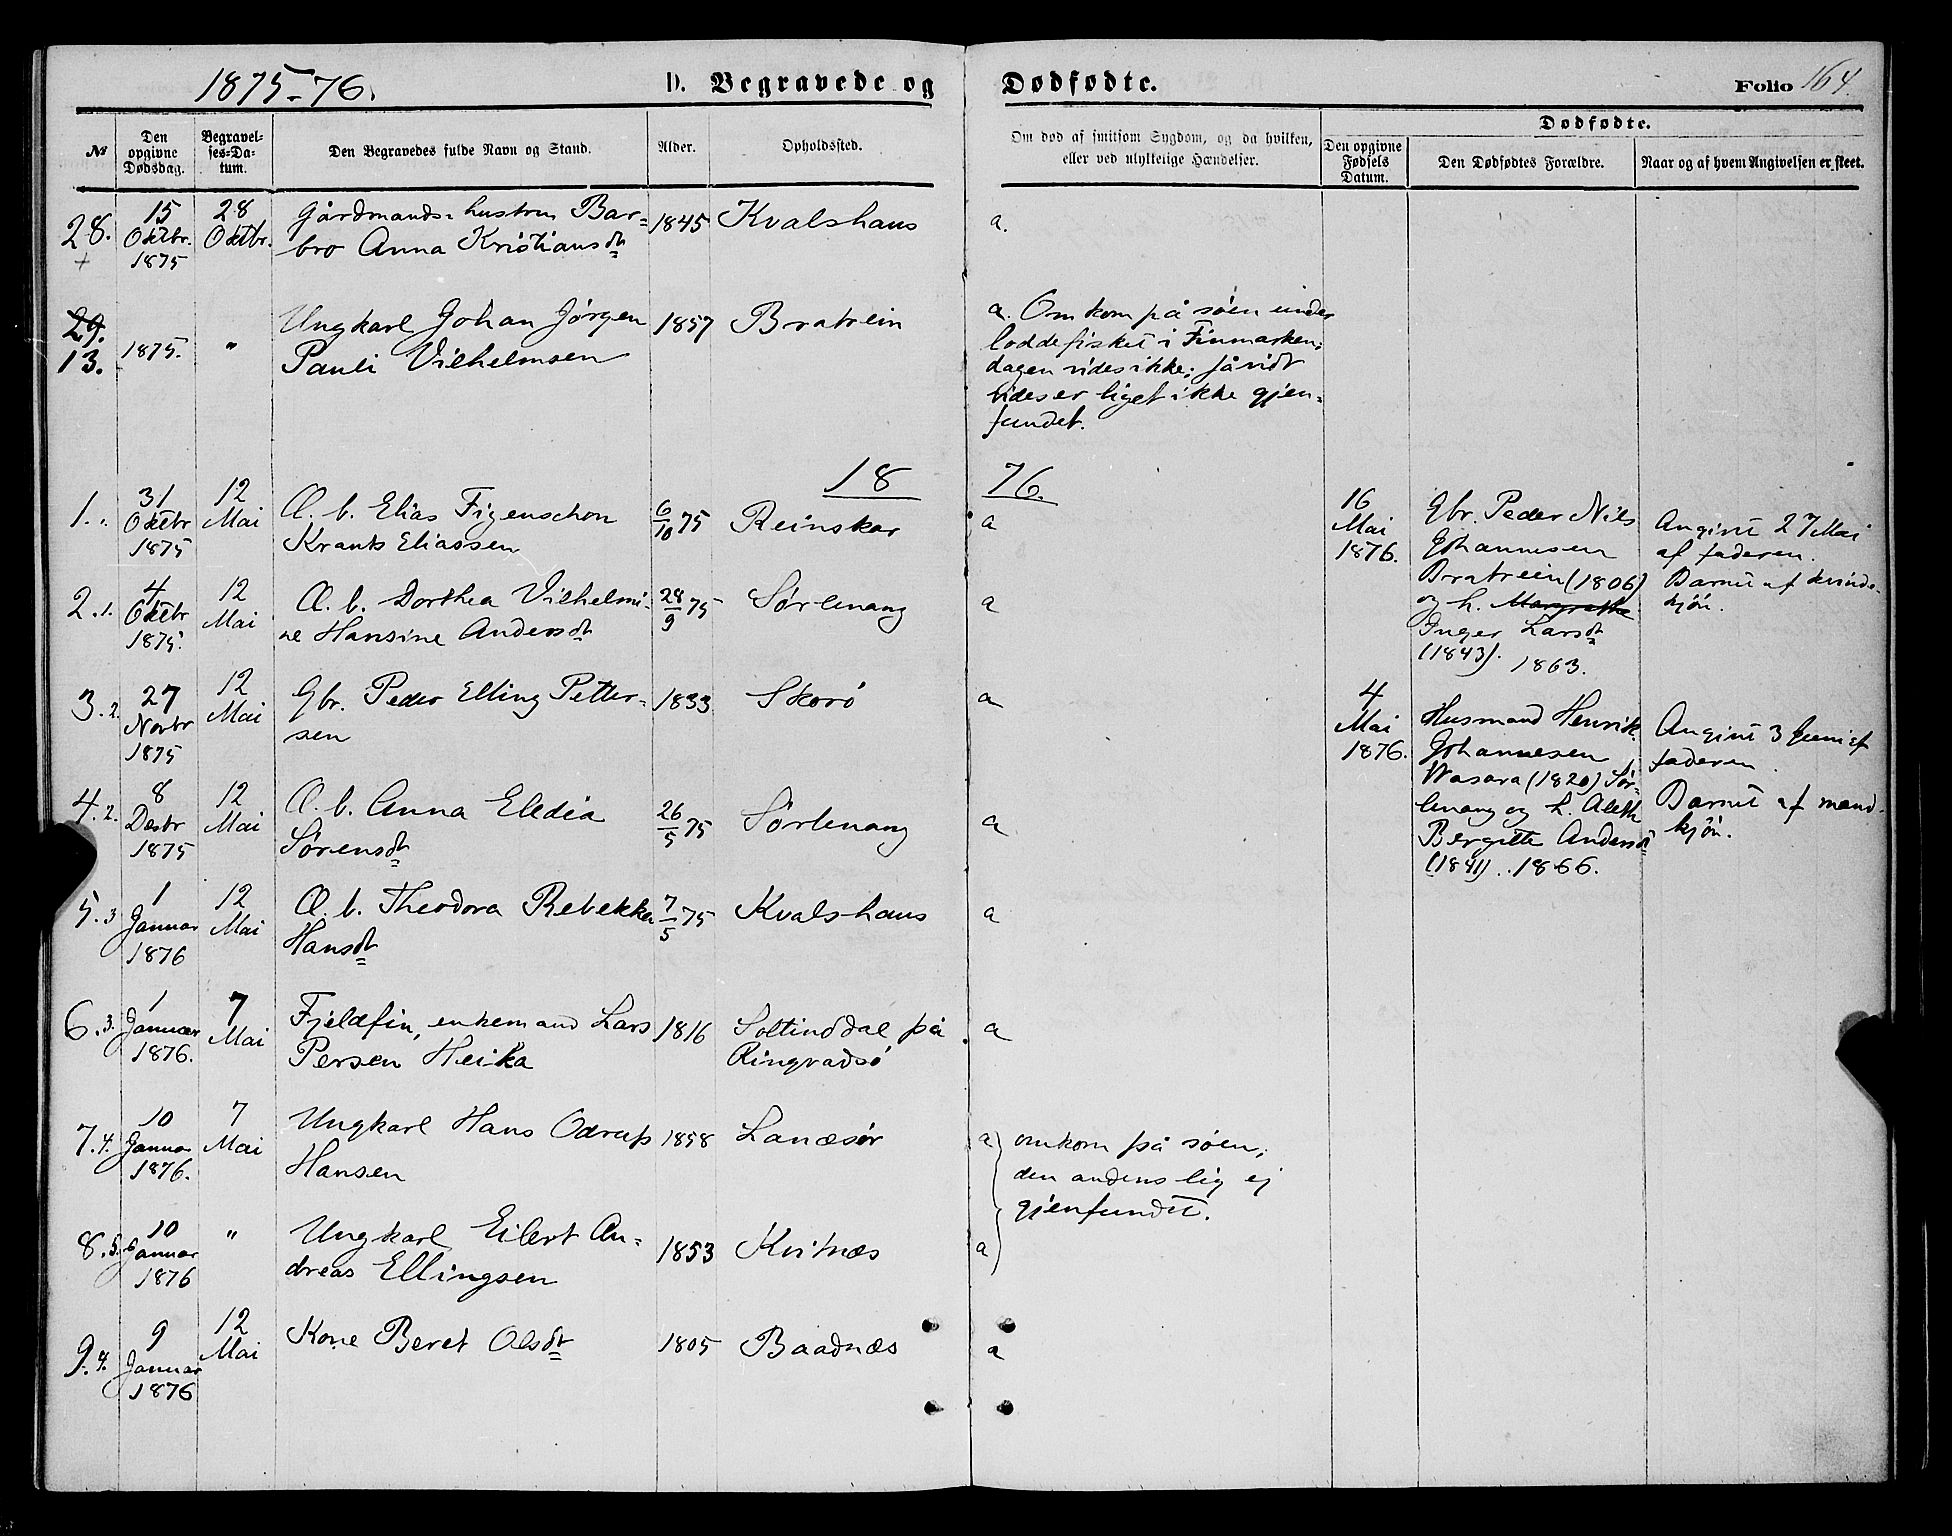 1875-76.
D. Begravede og Dødfødte.
Folio 164.
№
Den opgivne Dødsdag.
Begravel-ses-Da-tum.
Den Begravedes fulde Navn og Stand.
Alder.
Opholdssted.
Om død af smitsom Sygdom, og da hvilken,
eller ved ulykkelige Hændelser.
Dødfødte.
Den opgivne Fødsels Datum.
Den Dødfødtes Forældre.
Naar og af hvem Angivelsen er skeet.
28.
+
15
Oktbr.
1875
28
Oktbr.
Gårdmands-hustru Bar=
bro Anna Kristiansdt
1845
Kvalshaus
a.
29.
13.
1875.
"
Ungkarl Johan Jørgen
Pauli Vilhelmsen
1857
Bratrein
a. Omkom på søen under
loddefisket i Finmarken;
dagen vides ikke; såvidt
vides er liget ikke gjen=
fundet.
18 76.
1.
31
Oktbr
1875
12
Mai
Æ. b. Elias Figenschou
Krants Eliassen
6/10 75
Reinskar
a
2. 1.
4
Oktbr
1875.
12
Mai
Æ. b. Dorthea Vilhelmi=
ne Hansine Andersdt
28/9 75
Sørlenang
a
3. 2.
27
Novbr
1875
12
Mai
Gbr. Peder Elling Petter=
sen
1833
Skorö
a
4. 2.
8
Desbr
1875
12
Mai
Æ. b. Anna Eledia
Sørensdt
26/5 75
Sørlenang
a
5. 3
1
Januar
1876
12
Mai
Æ. b. Theodora Rebekka
Hansdt
7/5 75
Kvalshaus
a
6. 3.
1
Januar
1876.
7
Mai
Fjeldfin, enkemand Lars
Persen Heika
1816
Soltinddal på
Ringvadsö
a
7. 4.
10
Januar
1876.
7
Mai
Ungkarl Hans Odrup
Hansen
1858
Lanæsör
a
omkom på søen;
den andens lig ej
gjenfundet.
8. 5.
10
Januar
1876
"
Ungkarl Eilert An=
dreas Ellingsen
1853
Kvitnæs
a
9. 4.
9
Januar
1876
12
Mai
Kone Beret Olsdt
1805
Baadnæs
a
16
Mai
1876.
Gbr. Peder Nils
Johannesen
Bratrein (1806)
og h. Margrethe
Inger Larsdt
(1843). 1863.
Angivet 27 Mai
af faderen.
Barnet af kvinde-
kjön.
4
Mai
1876.
Husmand Henrik
Johannesen
Wasara (1820) Sør-
lenang og h. Aleth
Bergitte Andersdt
(1841). 1866.
Angivet 3 Juni af
faderen.
Barnet af mand-
kjön.